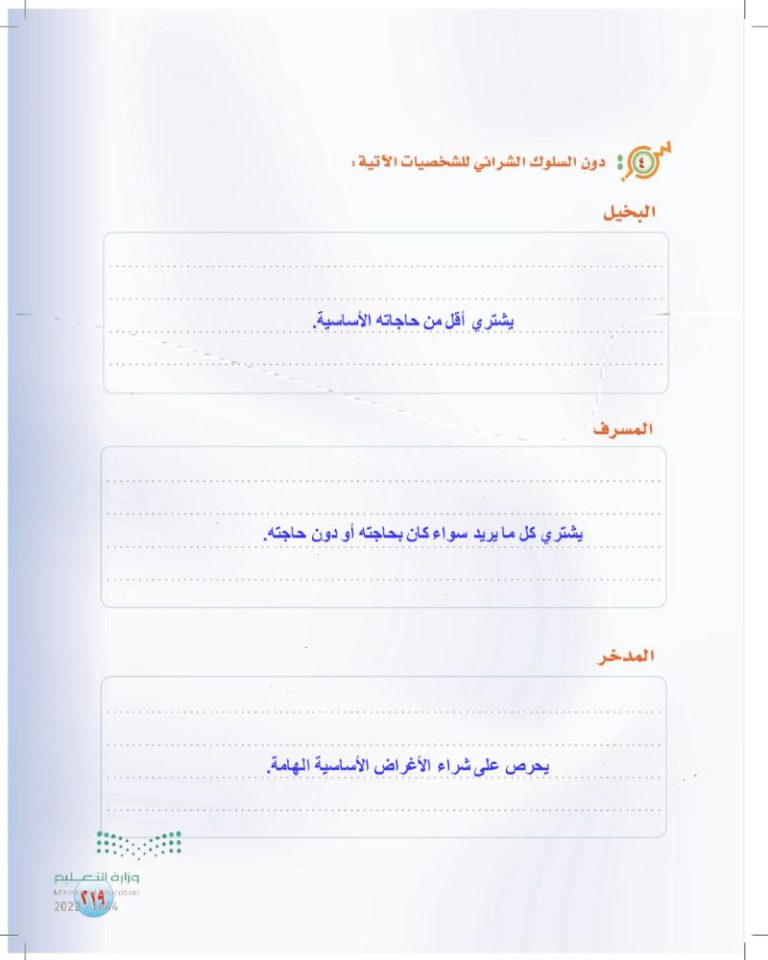 ٤ دون السلوك الشرائي للشخصيات الآتية :
البخيل
يشتري أقل من حاجاته الأساسية.
المسرف
يشتري كل ما يريد سواء كان بحاجته أو دون حاجته.
المدخر
يحرص على شراء الأغراض الأساسية الهامة.
وزارة التعليم
Ministry of Education
٢١٩
2022 - 1444